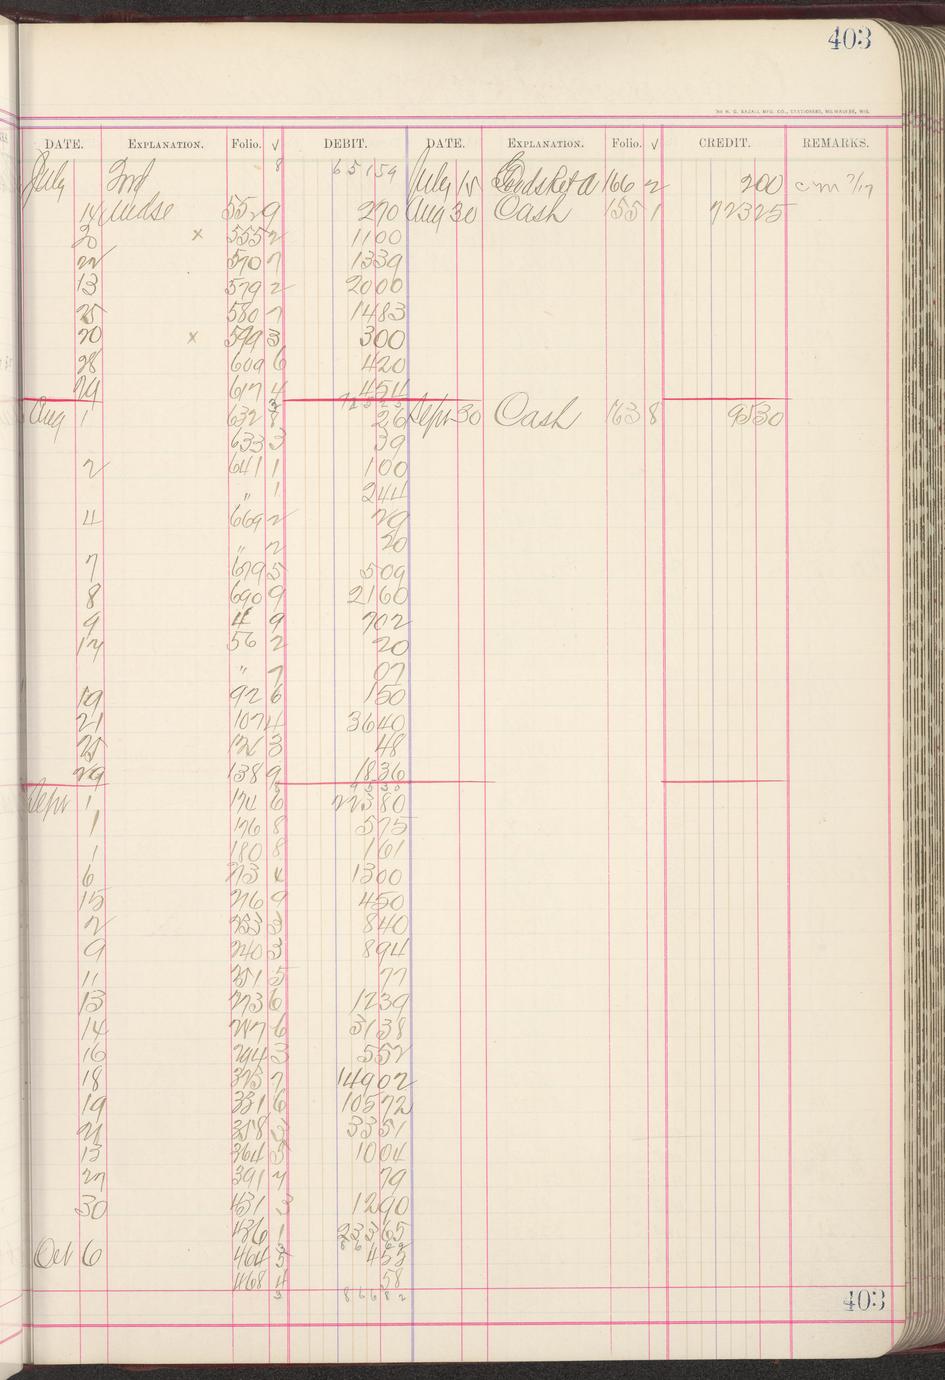 403
DATE. EXPLANATION. Folio. √ DEBIT. DATE. EXPLANATION. Folio. √ CREDIT. REMARKS.
July Fwd 8 65159 July 15 166 2 200 cm 7/17
14 Mdse 552 9 270 Aug 30 Cash 155 1 72325
20 x 555 2 1100
22 570 7 1339
13 579 2 2000
25 580 7 1483
20 x 599 3 300
28 609 6 420
29 617 4 454
3 72525
Aug 1 632 8 26 Sept 30 Cash 163 8 9530
633 3 39
2 641 1 100
" 1 244
4 669 2 29
" 2 20
7 679 5 509
8 690 9 2160
9 4 9 702
17 56 2 20
" 7 07
19 92 6 150
21 107 4 3640
25 126 3 48
29 138 9 1836
9530
Sept 1 174 6 22380
1 176 8 575
1 180 8 161
6 213 4 1300
15 216 9 450
2 233 3 840
9 240 3 894
11 251 5 77
13 273 6 1239
14 287 6 3138
16 294 3 552
18 325 7 14902
19 331 6 10572
21 358 3 3351
13 364 5 1004
27 391 4 79
30 431 3 1290
436 1 23365
3 86682
Oct 6 464 5 453
468 4 58
3 86682
403